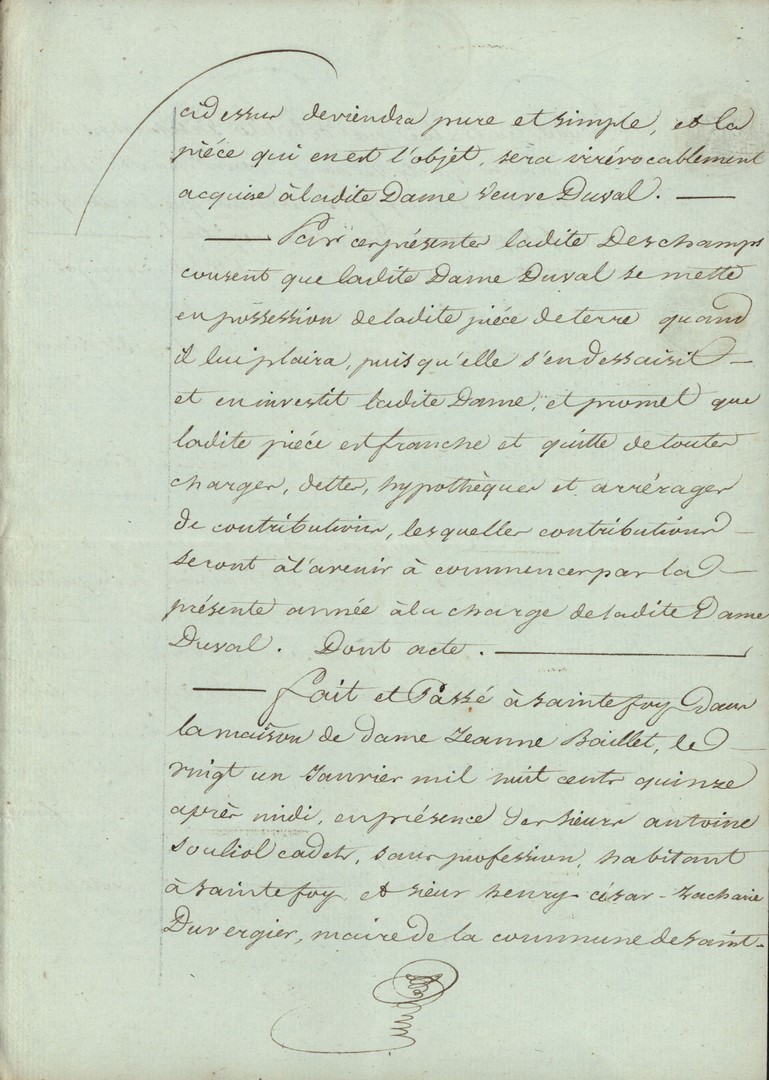 cidessus deviendra pure et simple, et la
piéce qui en est l'objet, sera irrévocablement
acquise à ladite Dame veuve Duval. —
— Par ces présentes ladite Deschamps
consent que ladite Dame Duval se mette
en possession de ladite piéce de terre quand
il lui plaira, puisqu'elle s'en dessaisit —
et en investit ladite Dame, et promet que
ladite piéce est franche et quitte de toutes
charges, dettes, hypothèques et arrérages
de contributions, lesquelles contributions —
seront à l'avenir à commencer par la —
présente année à la charge de ladite Dame
Duval. Dont acte. —
— Fait et Passé à Sainte foy dans
la maison de dame Jeanne Baillet, le —
vingt un Janvier mil huit cents quinze
après midi, en présence des sieurs antoine
Souliol cadet, sans profession, habitant
à Sainte foy, et sieur henry césar - Zacharie
Duvergier, maire de la commune de Saint-